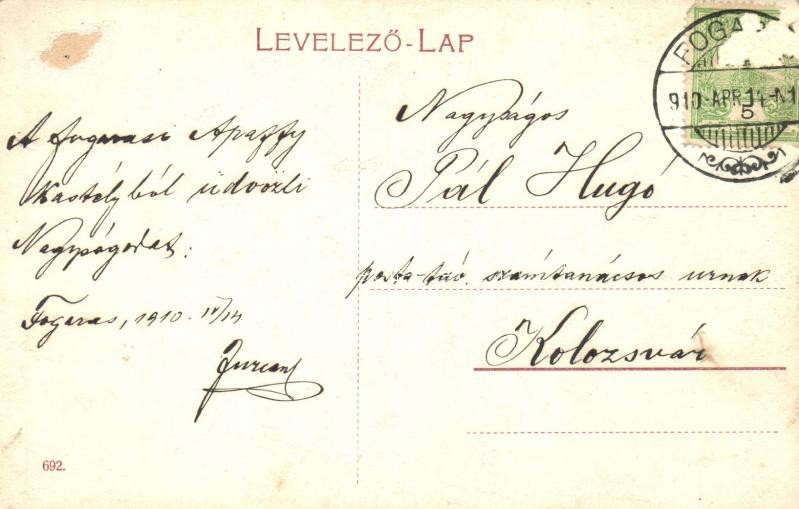 LEVELEZŐ-LAP
FOGA
910 APR 14
5
A fogarasi Apaffy
kastélyból üdvözli
Nagyságodat:
Fogaras, 1910. IV/14
Nagyságos
Pál Hugó
posta-táv. számtanácsos urnak
Kolozsvár
692.